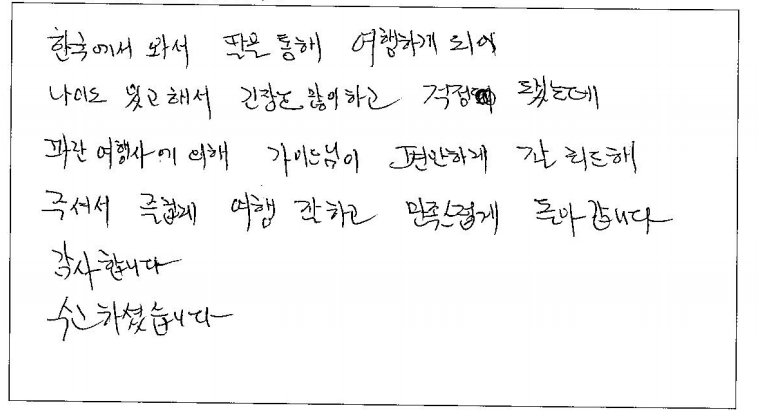 한국에서 와서 딸을 통해 여행하게 되어
나이도 있고 해서 긴장도 많이 하고 걱정 됐는데
파란 여행사에 의해 가이드님이 편안하게 잘 리드해
주셔서 즐겁게 여행 잘 하고 만족스럽게 돌아갑니다
감사합니다
수고하셨습니다